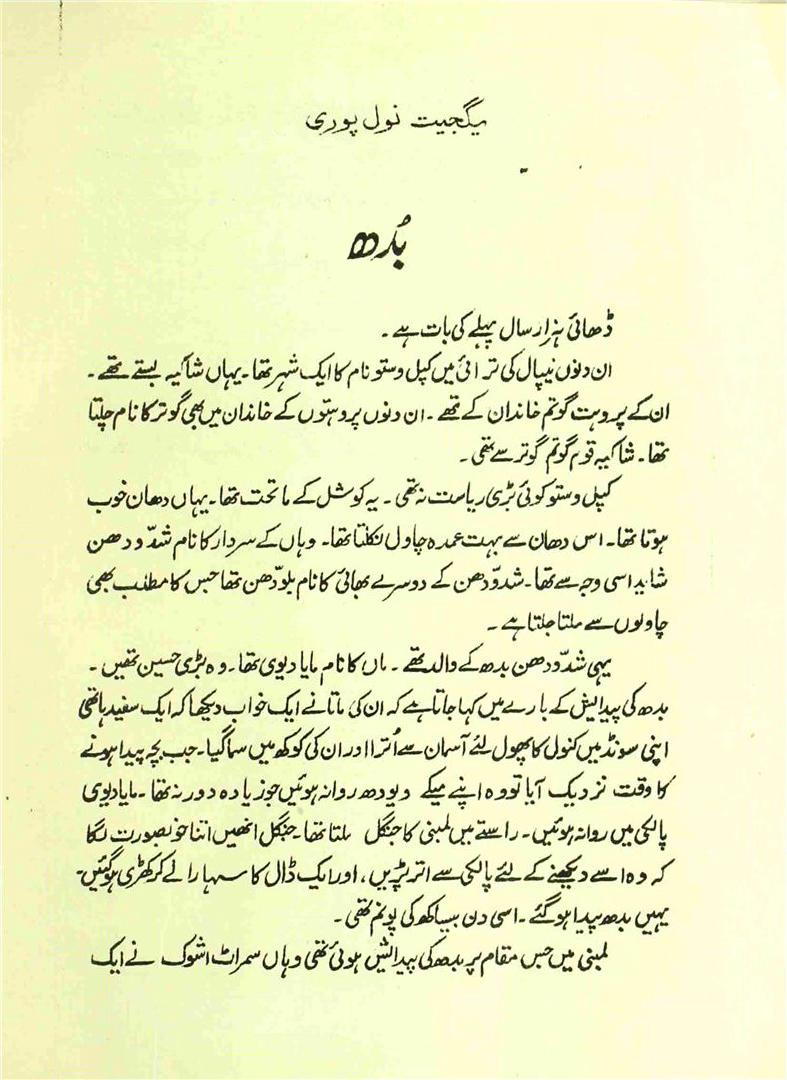 یگجیت نول پوری
بُدھ
ڈھائی ہزار سال پہلے کی بات ہے۔
ان دنوں نیپال کی ترائی میں کپل وستو نام کا ایک شہر تھا۔ یہاں شاکیہ بستے تھے۔
ان کے پروہت گوتم خاندان کے تھے۔ ان دنوں پروہتوں کے خاندان میں بھی گوتر کا نام چلتا
تھا۔ شاکیہ قوم گوتم گوتر سے تھی۔
کپل وستو کوئی بڑی ریاست نہ تھی۔ یہ کوشل کے ماتحت تھا۔ یہاں دھان خوب
ہوتا تھا۔ اس دھان سے بہت عمدہ چاول نکلتا تھا۔ وہاں کے سردار کا نام شدّودھن
شاید اسی وجہ سے تھا۔ شدوّدھن کے دوسرے بھائی کا نام بلوّدھن تھا جس کا مطلب بھی
چاولوں سے ملتا جلتا ہے۔
یہی شدّودھن بدھ کے والد تھے۔ ماں کا نام مایا دیوی تھا۔ وہ بڑی حسین تھیں۔
بدھ کی پیدایش کے بارے میں کہا جاتا ہے کہ ان کی ماتا نے ایک خواب دیکھا کہ ایک سفید ہاتھی
اپنی سونڈ میں کنول کا پھول لئے آسمان سے اُترا اور ان کی کوکھ میں سما گیا۔ جب بچہ پیدا ہونے
کا وقت نزدیک آیا تو وہ اپنے میکے ویودھ روانہ ہوئیں جو زیادہ دور نہ تھا۔ مایا دیوی
پالکی میں روانہ ہوئیں۔ راستے میں لمبنی کا جنگل ملتا تھا۔ جنگل انھیں اتنا خوبصورت لگا
کہ وہ اسے دیکھنے کے لئے پالکی سے اتر پڑیں، اور ایک ڈال کا سہارا لے کر کھڑی ہوگئیں۔
یہیں بدھ پیدا ہوگئے۔ اسی دن بیساکھ کی پونم تھی۔
لمبنی میں جس مقام پر بدھ کی پیدائش ہوئی تھی وہاں سمراٹ اشوک نے ایک